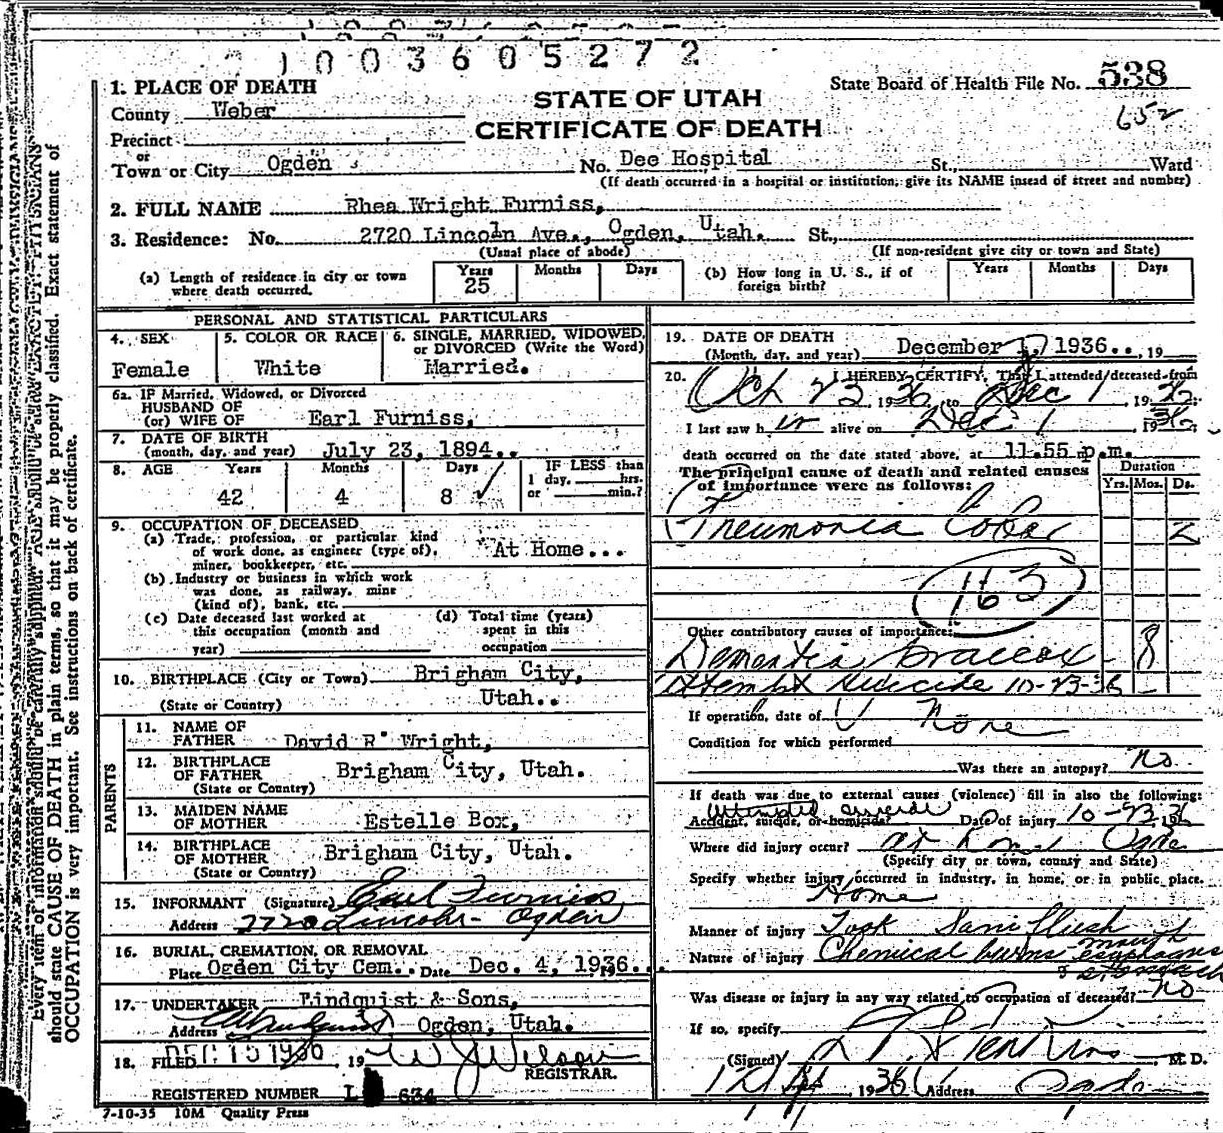 1003605272
1. PLACE OF DEATH
State Board of Health File No. 538
652
County Weber
STATE OF UTAH
CERTIFICATE OF DEATH
Precinct
or
Town or City Ogden No. Dee Hospital St., Ward
(If death occurred in a hospital or institution, give its NAME insead of street and number)
2. FULL NAME Rhea Wright Furniss,
3. Residence: No. 2720 Lincoln Ave., Ogden, Utah. St.,
(Usual place of abode) (If non-resident give city or town and State)
(a) Length of residence in city or town where death occurred. Years 25 Months Days
(b) How long in U. S., if of foreign birth? Years Months Days
PERSONAL AND STATISTICAL PARTICULARS
4. SEX Female
5. COLOR OR RACE White
6. SINGLE, MARRIED, WIDOWED, or DIVORCED (Write the Word) Married.
6a. IF Married, Widowed, or Divorced
HUSBAND OF
(or) WIFE OF Earl Furniss,
7. DATE OF BIRTH
(month, day, and year) July 23, 1894..
8. AGE Years 42 Months 4 Days 8 IF LESS than 1 day, hrs. or min.?
9. OCCUPATION OF DECEASED
(a) Trade, profession, or particular kind
of work done, as engineer (type of), At Home...
miner, bookkeeper, etc.
(b) Industry or business in which work
was done, as railway, mine
(kind of), bank, etc.
(c) Date deceased last worked at this occupation (month and year)
(d) Total time (years) spent in this occupation
10. BIRTHPLACE (City or Town) Brigham City,
(State or Country) Utah..
PARENTS
11. NAME OF FATHER David R. Wright,
12. BIRTHPLACE OF FATHER Brigham City, Utah.
(State or Country)
13. MAIDEN NAME OF MOTHER Estelle Box,
14. BIRTHPLACE OF MOTHER Brigham City, Utah.
(State or Country)
15. INFORMANT (Signature) Earl Furniss
Address 2720 Lincoln - Ogden
16. BURIAL, CREMATION, OR REMOVAL
Place Ogden City Cem.. Date Dec. 4, 1936..
17. UNDERTAKER Lindquist & Sons,
Address Ogden, Utah.
18. FILED DEC 15 1936, 19 W J Wilson
REGISTRAR.
REGISTERED NUMBER L 634
7-10-35 10M Quality Press
19. DATE OF DEATH
(Month, day, and year) December 1, 1936.., 19
20. I HEREBY CERTIFY, That I attended deceased from
Oct 23 1936, to Dec 1, 1936.
I last saw her alive on Dec 1, 1936
death occurred on the date stated above, at 11:55 p.m.
The principal cause of death and related causes of importance were as follows: Duration
Yrs. Mos. Ds.
Pneumonia Lobar 2
163
Other contributory causes of importance:
Dementia praecox 8
Attempt suicide 10-23-36
If operation, date of None
Condition for which performed
Was there an autopsy? No
If death was due to external causes (violence) fill in also the following:
Attempted suicide
Accident, suicide, or homicide? Date of injury 10-23, 36
Where did injury occur? at home Ogden
(Specify city or town, county and State)
Specify whether injury occurred in industry, in home, or in public place.
Home
Manner of injury Took Saniflush
Nature of injury Chemical burns - mouth esophagus & stomach
Was disease or injury in any way related to occupation of deceased? No
If so, specify
(Signed) M. D.
1936 Address Ogden
should state CAUSE OF DEATH in plain terms, so that it may be properly classified. Exact statement of
OCCUPATION is very important. See instructions on back of certificate.